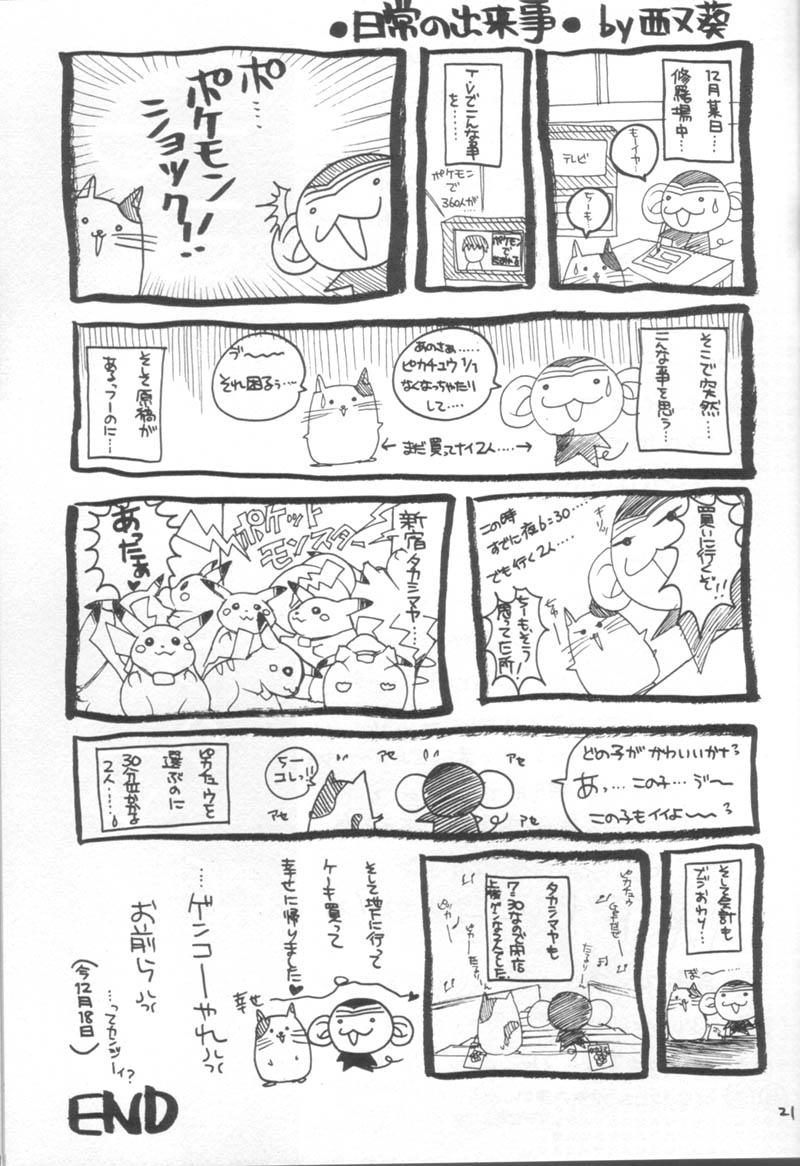 •日常の出来事• by 西又葵
12月某日…
修羅場中…
もーイヤー
テレビ
ちーも
T.Vでこんな事
を………
ポケモン
で
360人が
ポケモン
で
ポ……
ポケモン
ショック!!
そこで突然…
こんな事を思う…
あのさぁ……
ピカチュウ 1/1
なくなっちゃたり
して……
ゔ〜〜〜
それ困るぅ…
← まだ買ってナイ2人……→
そして原稿が
あるっつーのに…
買いに行くぞ!!
キリッ
この時
すでに夜6:30……
でも行く2人……
ちーもそう
思ってた所!
新宿タカシマヤ……
ポケット
モンスター
あったぁ♥
どの子がかわいいかナ?
あっ… この子… ゔ〜〜
この子もイイよ〜〜?
アセ
アセ
アセ
アセ
ちー
コレっ!!
ピカチュウを
選ぶのに
30分位かかる
2人……
そして会計も
ブジおわり…
ぽ〜……
タカシマヤも
7:30なので閉店
ピカチュウ
ピッカー
ピカー
そして地下に行って
ケーキ買って
幸せに帰りました♥
幸せ
…ゲンコーやれ
お前ら
…ってカンジーィ?
(今12月18日)
END
21